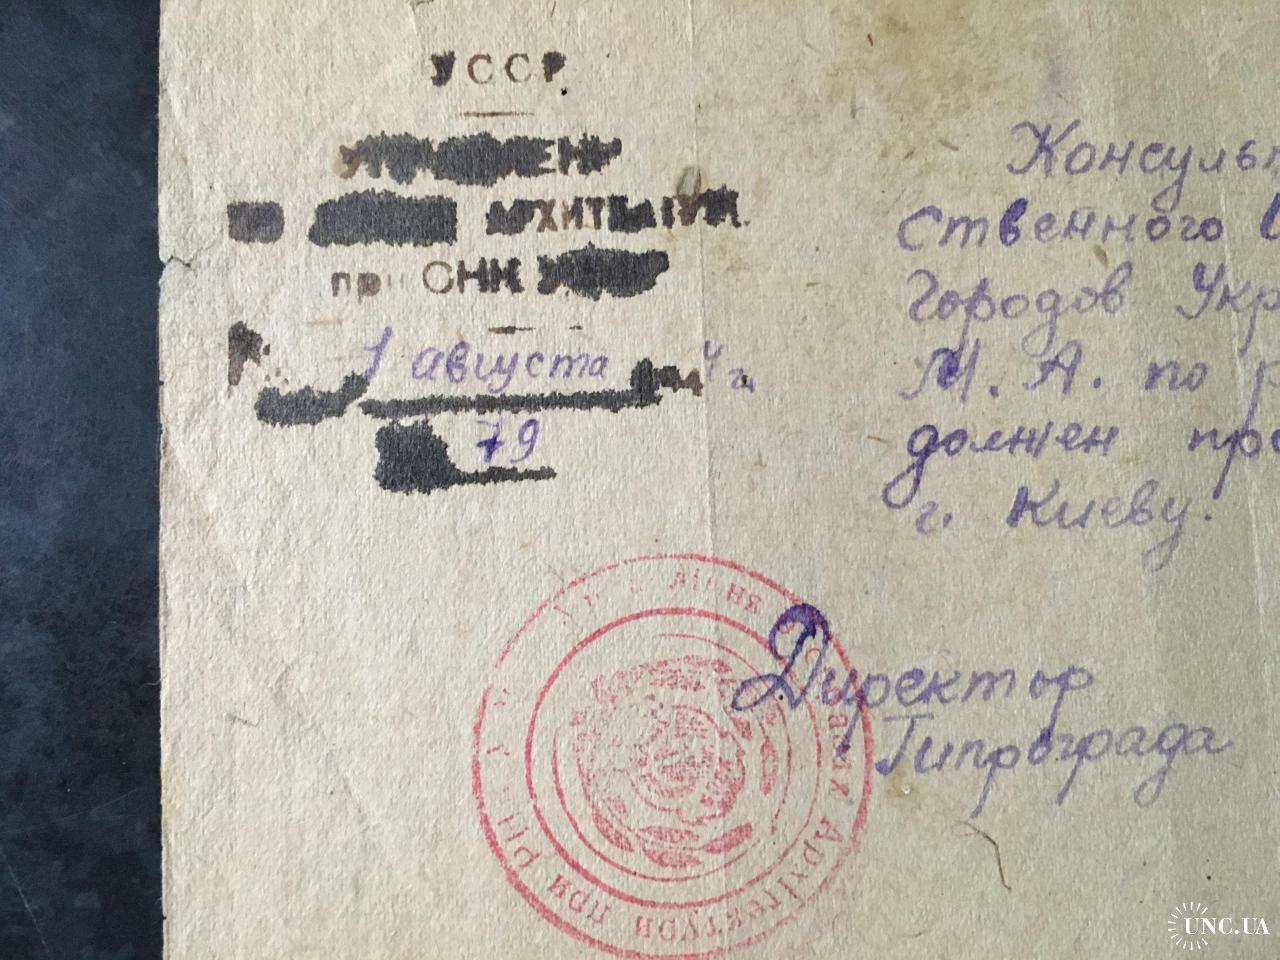 УССР
УПРАВЛЕНИЕ
ПО АРХИТЕКТУРЫ
при СНК УССР
1 августа 4г.
79
Консуль
ственного
Городов Укр
М. А. по р
должен про
г. Киеву.
Директор
Гипрограда
Архітектури при РН
UNC.UA